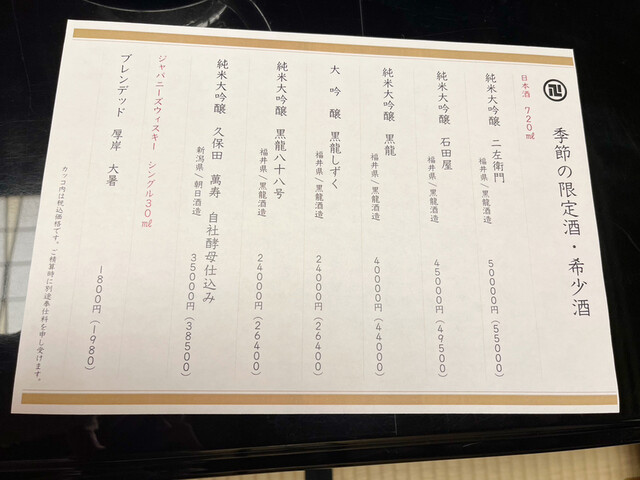 季節の限定酒・希少酒
日本酒 720㎖
純米大吟醸 二左衛門
福井県/黒龍酒造
50000円(55000)
純米大吟醸 石田屋
福井県/黒龍酒造
45000円(49500)
純米大吟醸 黒龍
福井県/黒龍酒造
40000円(44000)
大吟醸 黒龍しずく
福井県/黒龍酒造
24000円(26400)
純米大吟醸 黒龍八十八号
福井県/黒龍酒造
24000円(26400)
純米大吟醸 久保田 萬寿 自社酵母仕込み
新潟県/朝日酒造
35000円(38500)
ジャパニーズウィスキー シングル30㎖
ブレンデッド 厚岸 大暑
1800円(1980)
カッコ内は税込価格です。ご精算時に別途奉仕料を申し受けます。